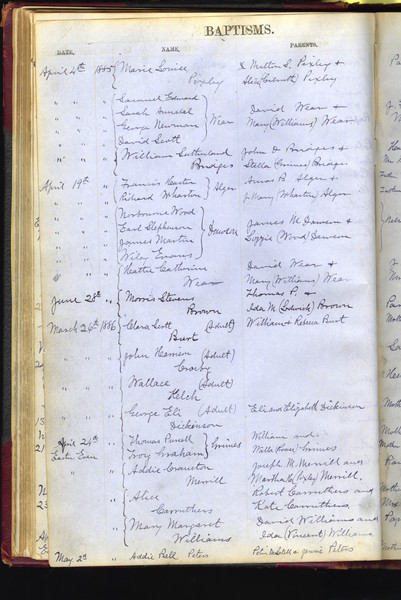 BAPTISMS.
DATE. NAME. PARENTS.
April 5th 1885 Marie Louise Milton S. Pixley &
Pixley Pixley
Samuel Edward
Sarah David Wear &
George Newman Wear Mary (Williams) Wear
David Scott
William Sutherland John D. Bridges &
Bridges Stella (Grimes) Bridges
April 19th Francis Alger Amos B. Alger &
Richard Wharton Mary (Wharton) Alger
Norbourne Wood
Earl Stephenson Dawson James M. Dawson &
James Martin Lizzie (Wood) Dawson
Wiley Evans
Hattie Catherine David Wear &
Wear Mary (Williams) Wear
June 28th Morris Stevens Thomas P. &
Brown Ida M. Brown
March 26th 1886 Clara Scott (Adult) William & Rebecca Burt
Burt
John Harrison (Adult)
Crosby
Wallace (Adult)
Kelch
George Eli (Adult) Eli and Elizabeth Dickinson
Dickinson
April 24th Thomas Grimes William and
Easter Even Troy Graham Grimes
Addie Cranston Joseph M. Merrill and
Merrill Martha (Pixley) Merrill.
Alice Robert Carruthers and
Carruthers Kate Carruthers
Mary Margaret David Williams and
Williams Ida (Vincent) Williams
May 2nd Addie Bell Peters Jennie Peters